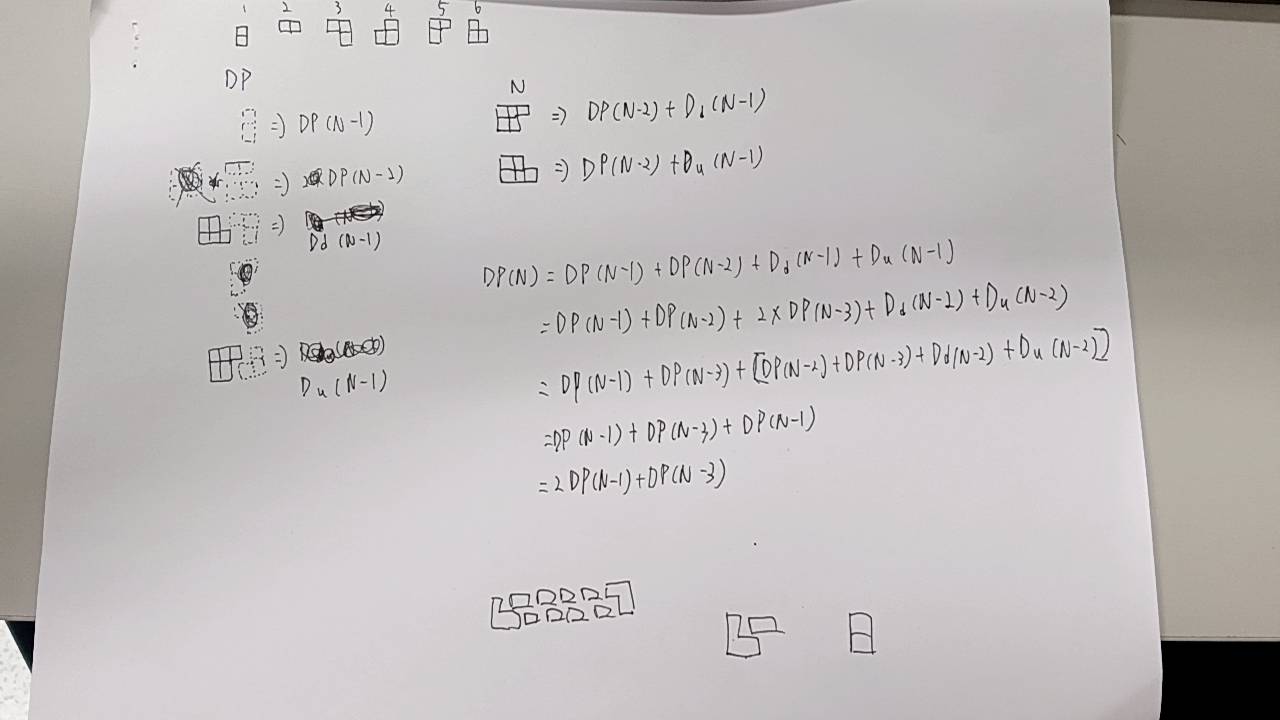 1 2 3 4 5 6
DP
N
=) DP(N-1)
=) DP(N-2) + Dd(N-1)
=) 2 DP(N-2)
=) DP(N-2) + Du(N-1)
=) Dd(N-1)
=) Du(N-1)
DP(N) = DP(N-1) + DP(N-2) + Dd(N-1) + Du(N-1)
= DP(N-1) + DP(N-2) + 2 x DP(N-3) + Dd(N-2) + Du(N-2)
= DP(N-1) + DP(N-3) + [DP(N-2) + DP(N-3) + Dd(N-2) + Du(N-2)]
= DP(N-1) + DP(N-3) + DP(N-1)
= 2DP(N-1) + DP(N-3)